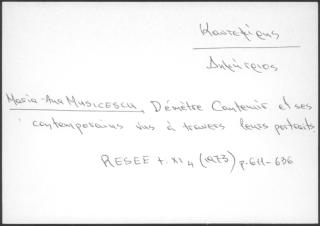 Καντεμίρης
Δημήτριος
Maria-Ana MUSICESCU, Démètre Cantemir et ses
contemporains vus à travers leurs portraits.
RESEE t. XI 4 (1973) p. 611-636